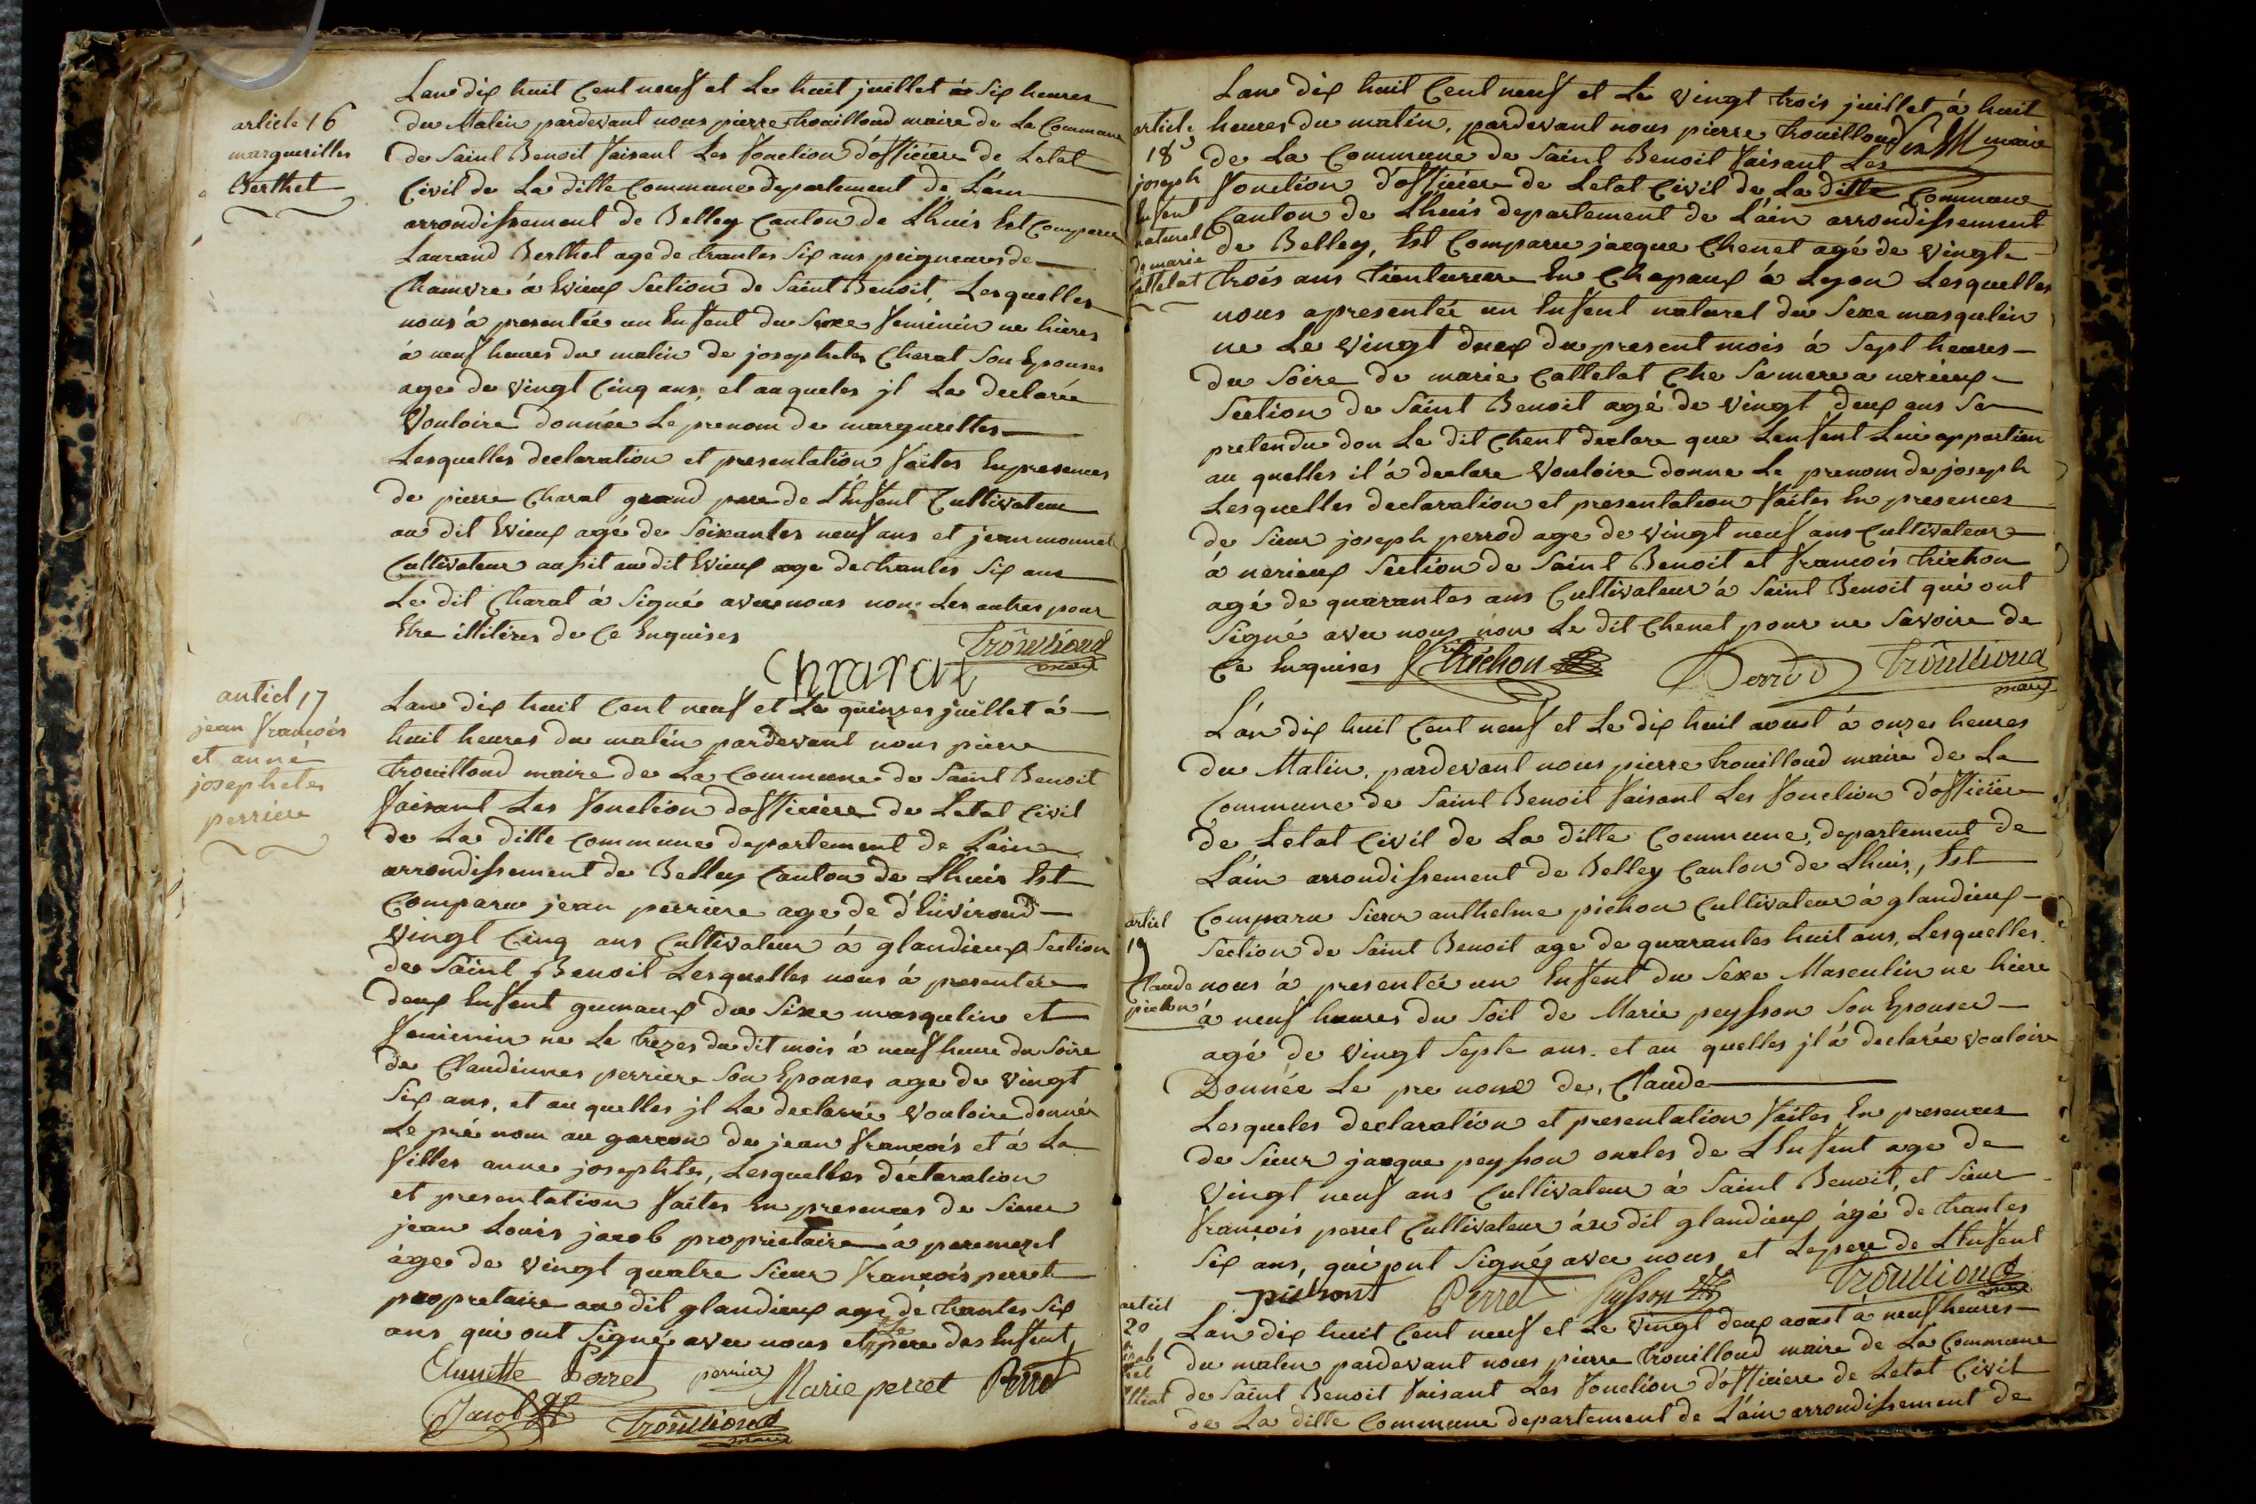 article 16
marguerittes
Berthet
Lan dix huit Cent neuf et Le huit juillet á Six heures
du Matin pardevant nous pierre trouilloud maire de La Commune
de Saint Benoit faisant Les fonction d'officiere de Letat
Civil de La ditte Commune departement de L'ain
arrondissement de Belley Canton de Lhuis Est Comparu
Laurand Berthet age de trantes Six ans peigneures de
Chamvre á Evieux Section de Saint Benoit, Lesquelles
nous á presentée un Enfent du Sexe feminin ne hieres
á neuf heures du matin de josephtes Charat Son Epouses
age de vingt Cinq ans, et auqueles jl La declarée
Vouloire donnée Le prenom de margurettes
Lesquelles declaration et presentation faites Enpresences
de pierre Charat grand pere de L'Enfent Cultivateur
au dit Evieux agé de Soixantes neuf ans et jean monnet
Cultivateur ausit audit Evieux age de trantes Six ans
Le dit Charat á Signé avec nous non Les autres pour
Etre illitéres de Ce Enquises
Charat
Trouilloud
maire
articl 17
jean francois
et anne
josephetes
perriere
Lan dix huit Cent neuf et Le quinzes juillet á
huit heures du matin pardevant nous pierre
trouilloud maire de La Commune de Saint Benoit
faisant Les fonction d'officiére de Letat Civil
de La ditte Commune departement de L'ain
arrondissement de Belley Canton de Lhuis Est
Comparu jean perriere age de d'Environd
vingt Cinq ans Cultivateur á glandieux Section
de Saint Benoit Lesquelles nous á presentée
deux Enfent gumaux du Sexe masqulin et
feminin ne Le trezes du dit mois á neuf heure du Soire
de Claudinnes perriere Son Epouses age de vingt
Six ans, et au quelles jl La declarée Vouloire donnér
Le pré nom au garcon de jean francois et á La
filles anne josephtes, Lesquelles déclaration
et presentation faites En presences de Sieur
jean Louis jacob proprietaire á
áge de vingt quatre Sieur francois perret
propretaire au dit glandieux age de trantes Six
ans qui ont Signé avec nous et Le pere des Enfent
Perret perrier Marie perret Perret
Jacob Trouilloud
maire
article
18
joseph
Enfent
naturel
de marie
Cattelat
Lan dix huit Cent neuf et Le vingt trois juillet á huit
heures du matin, pardevant nous pierre trouilloud maire
de La Commune de Saint Benoit faisant Les
fonction d'officiére de Letat Civil de La ditte Commune
Canton de Lhuis departement de L'áin arrondissement
de Belley, Est Comparu jacque Chenet agé de vingt
trois ans tienturiere En Chapaux á Lyon Lesquelles
nous apresentée un Enfent naturel du Sexe masqulin
ne Le vingt duex du present mois á Sept heures
du Soire de marie Cattelat Che Sa mere a nerieux
Section de Saint Benoit agé de vingt deux ans Sa
pretendu don Le dit Chent declare que Lenfent Lui appartien
au quelles il á declare Vouloire donne Le prenom de joseph
Lesquelles declaration et presentation faites En presences
de Sieur joseph perrod age de vingt neuf ans Cultivateur
á nerieux Section de Saint Benoit et francois trichon
agé de quarantes ans Cultivateur á Saint Benoit qui ont
Signé avec nous non Le dit Chenet pour ne Savoire de
Ce Enquises
Trichon Perrod Trouilloud
maire
articl
19
Claude
pichon
L'án dix huit Cent neuf et Le dix huit aoust á onzes heures
du Matin, pardevant nous pierre trouilloud maire de La
Commune de Saint Benoit faisant Les fonction d'officiére
de Letat Civil de La ditte Commune, departement de
L'áin arrondissement de Belley Canton de Lhuis, Est
Comparu Sieur anthelme pichon Cultivateur á glandieux
Section de Saint Benoit age de quarantes huit ans, Lesquelles
nous á presentée un Enfent du Sexe Masculin ne hiere
á neuf heures du Soit de Marie peysson Son Epouses
agé de vingt Septe ans et au quelles jl á declarée Vouloire
Donnée Le pre nom de, Claude
Lesqueles declaration et presentation faites En presences
de Sieur jacque peysson oncles de LEnfent age de
Vingt neuf ans Cultivateur á Saint Benoit, et Sieur
francois perret Cultivateur áu dit glandieux ágé de trantes
Six ans, qui ont Signé avec nous et Lepere de LEnfent
pichont Perret Peysson Trouilloud
maire
articl
20
Lan dix huit Cent neuf et Le vingt deux aoust á neuf heures
du maten pardevant nous pierre trouilloud maire de La Commune
de Saint Benoit faisant Les fonction d'officiere de Letat Civil
de La ditte Commune departement de L'áin arrondissement de